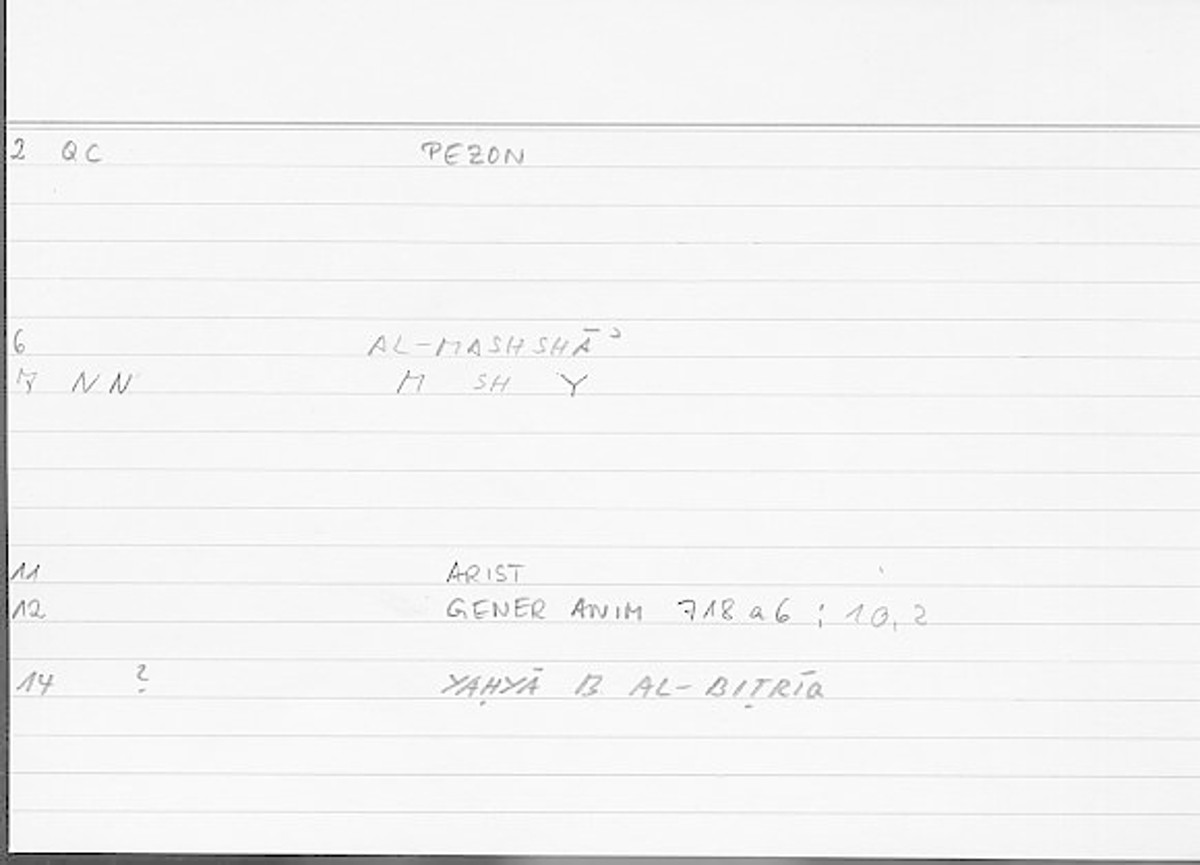 2 QC PEZON
6 AL-MASHSHĀʾ
7 NN M SH Y
11 ARIST
12 GENER ANIM 718 a 6 ; 10, 2
14 ? YAḤYĀ B AL-BIṬRĪQ